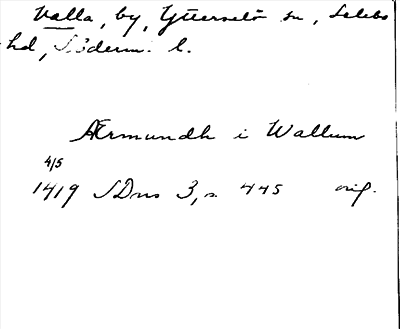 Valla, by, Ytterselö sn, Selebo
hd, Söderm. l.
Ærmundh i Wallum
4/5
1419 SDns 3, s. 445 orig.